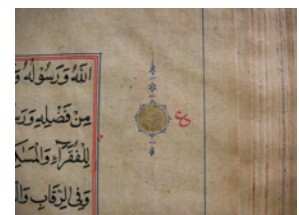 اللهُ وَرَسُولُهُ وَ
مِنْ فَضْلِهِ وَرَسُ
لِلْفُقَرَاءِ وَالْمَسَاكِ
وَفِي الرِّقَابِ وَالْ